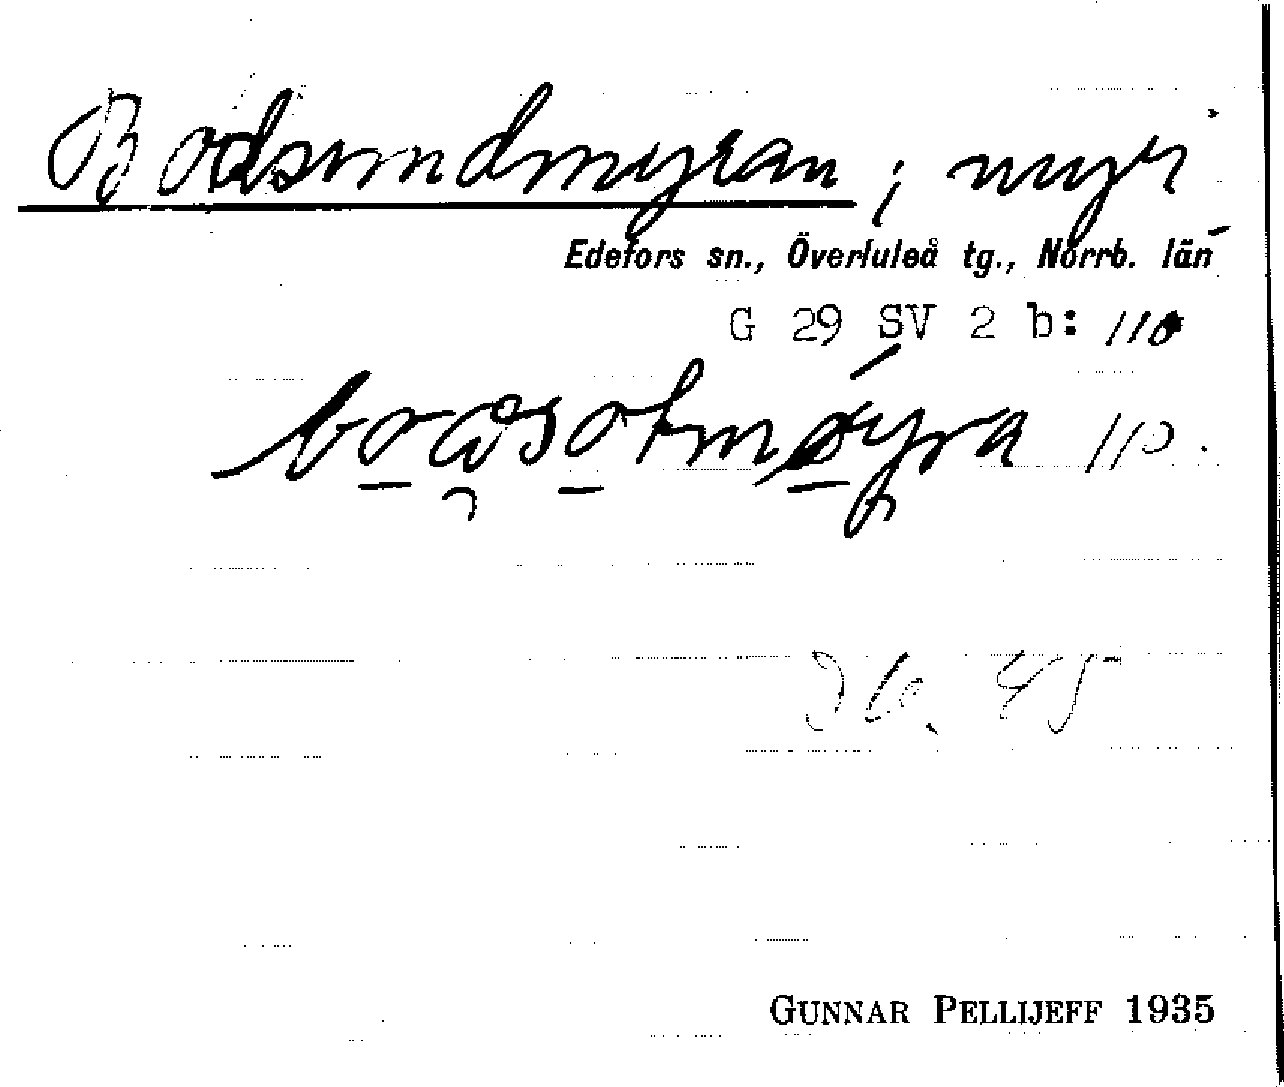 Bodsundmyran, myr
Edefors sn., Överluleå tg., Norrb. län
G 29 SV 2 b: 110
110.
45
GUNNAR PELLIJEFF 1935